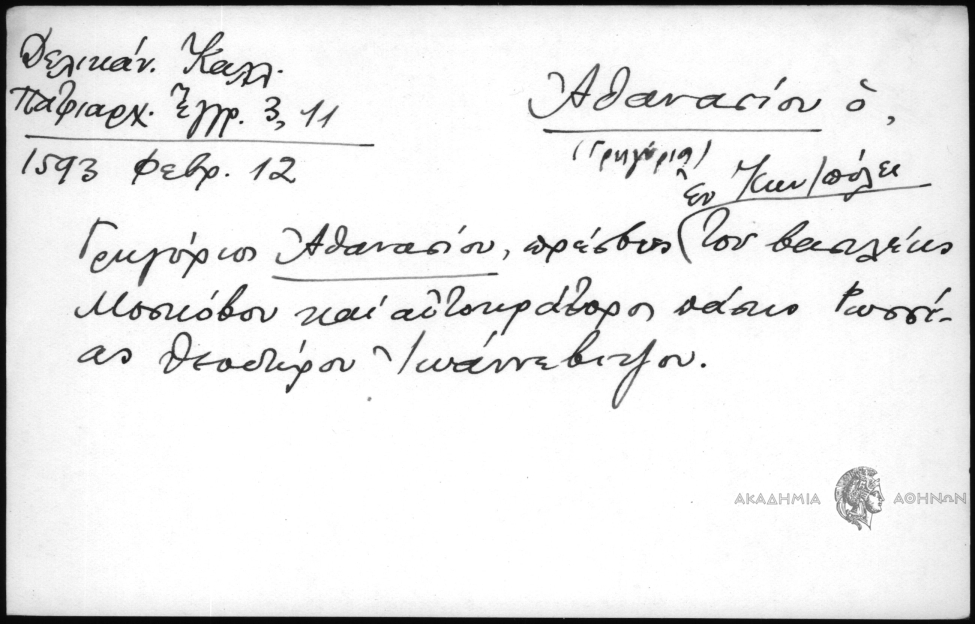 Δελικάν. Καλλ.
Πατριαρχ. Ἔγγρ. 3, 11
1593 Φεβρ. 12
Ἀθανασίου ὁ,
(Γρηγόριος)
ἐν Κων/πόλει
Γρηγόριος Ἀθανασίου, πρέσβυς (τοῦ βασιλέως
Μοσκόβου καὶ αὐτοκράτορος πάσης Ρωσσί-
ας Θεοδώρου Ἰωάννεβιτζου.
ΑΚΑΔΗΜΙΑ ΑΘΗΝΩΝ